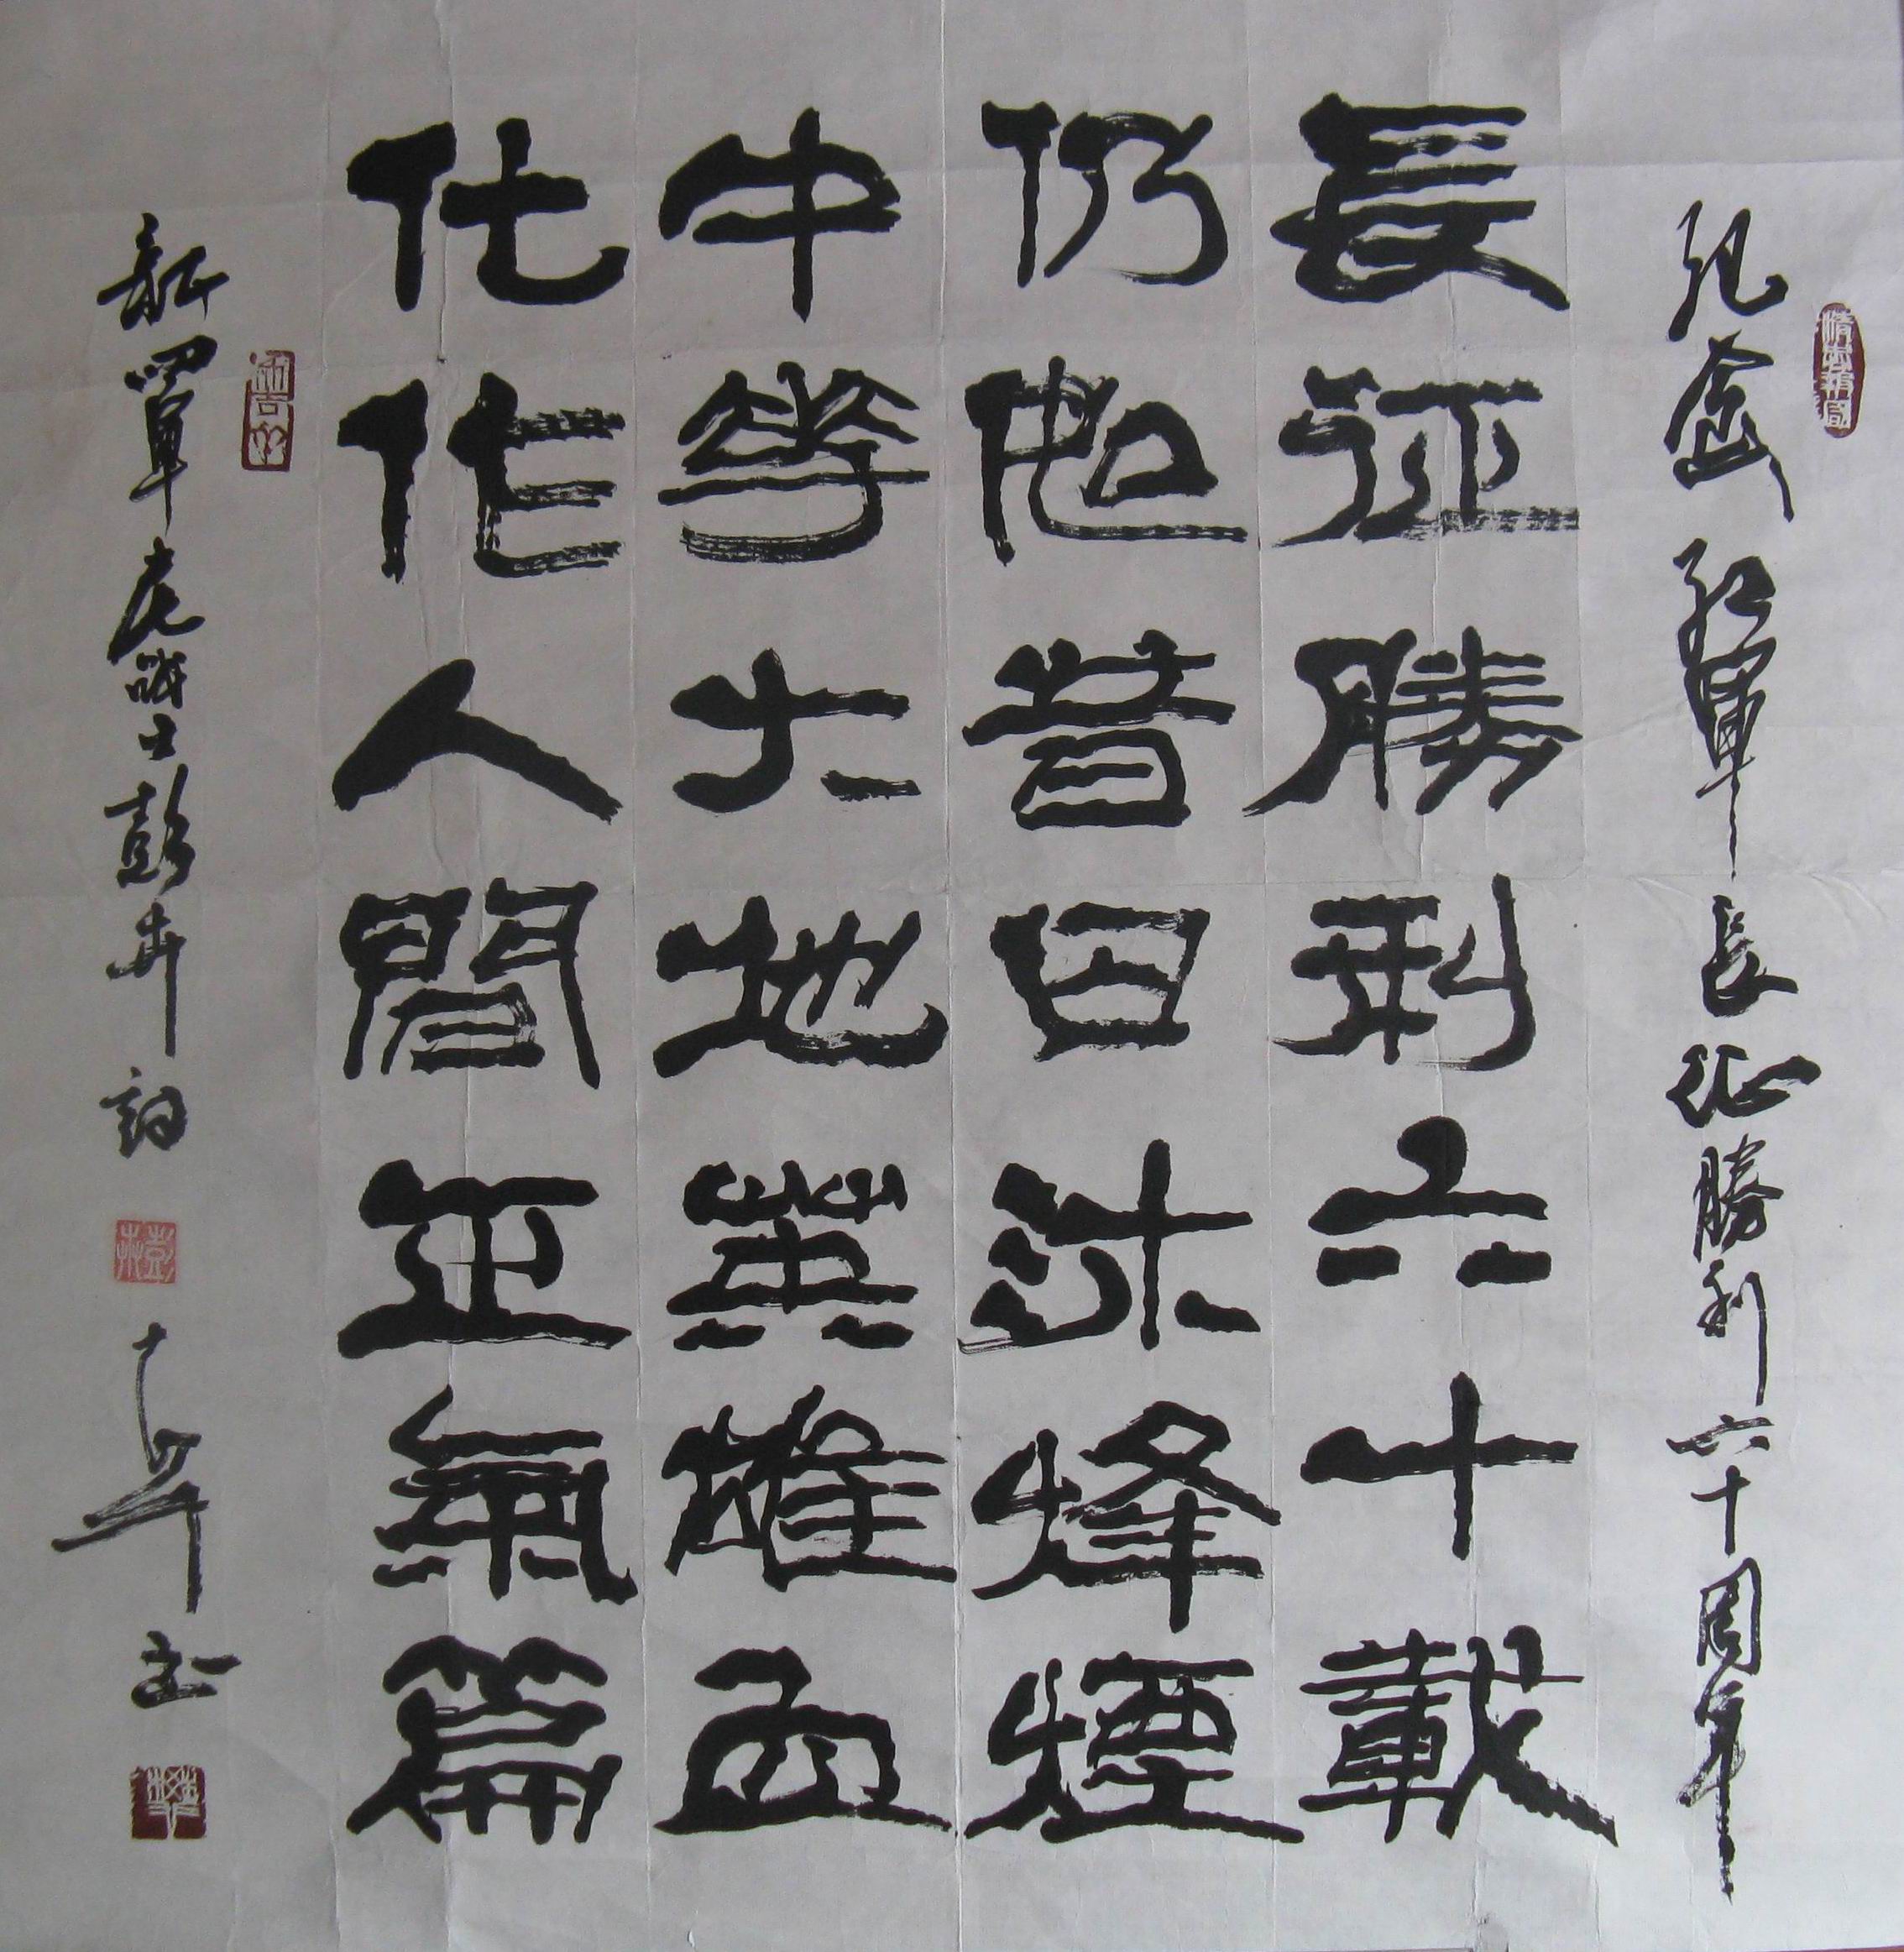 紀念红軍長征勝利六十周年
長征勝利六十載
仍昔日沐烽煙
中華大地英雄血
化作人間正氣篇
新四軍老战士彭卉詩
书